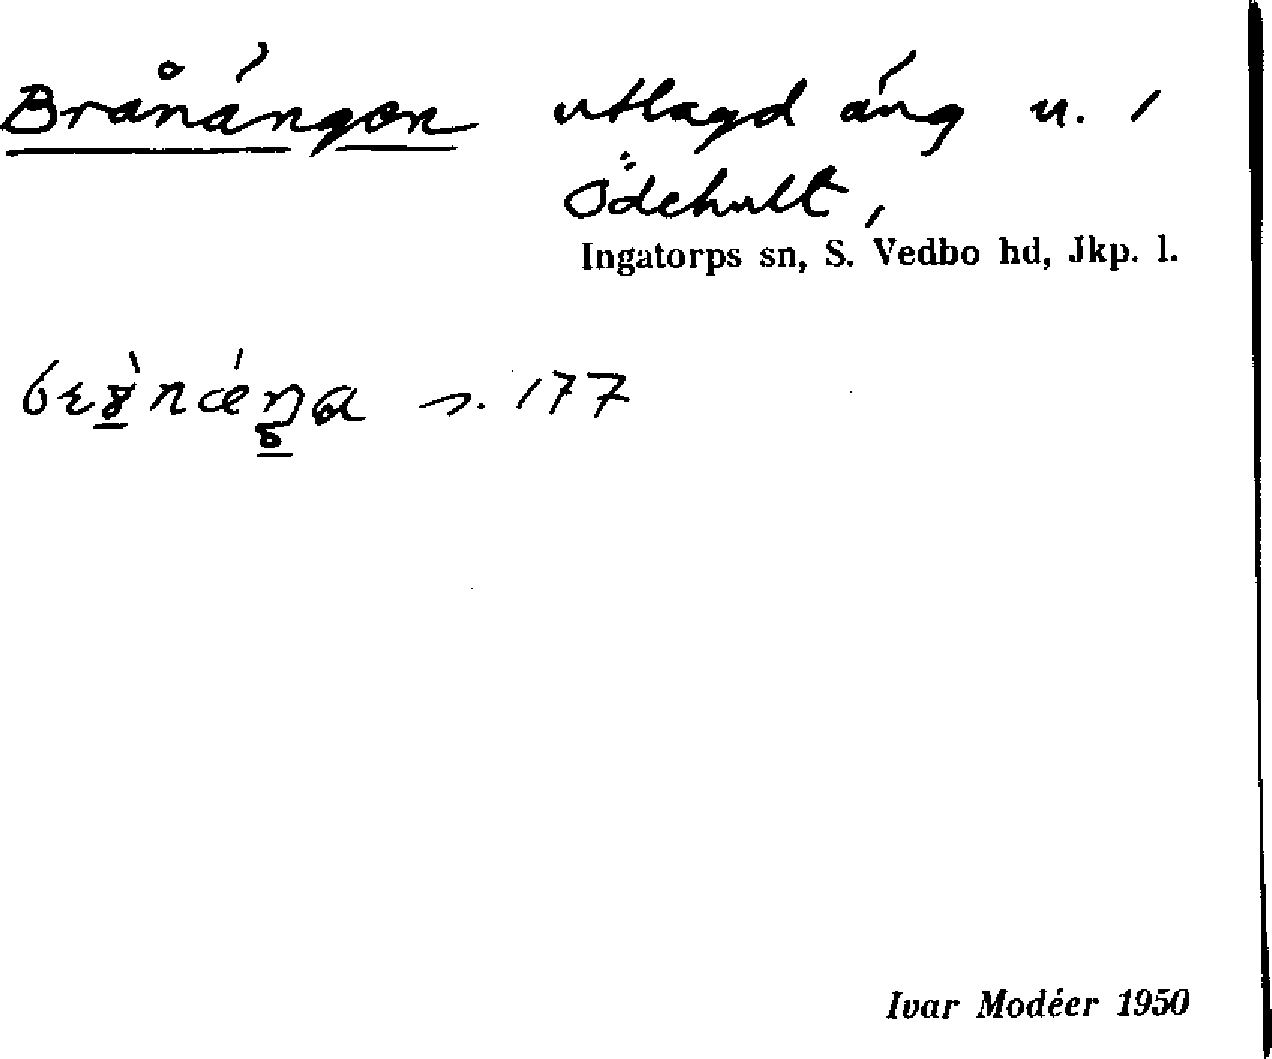 Brånängen utlagd äng u. 1
Ödehult,
Ingatorps sn, S. Vedbo hd, Jkp. l.
s. 177
Ivar Modéer 1950